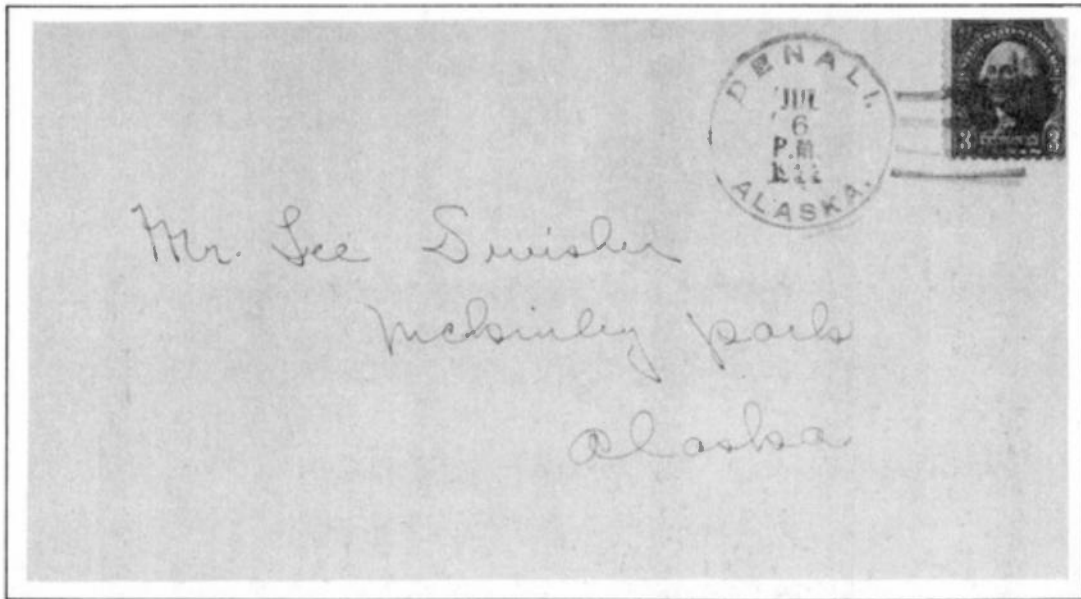 DENALI.
JUL
6
P.M.
ALASKA.
3 3
Mr. Lee Swisher
Mckinley park
Alaska